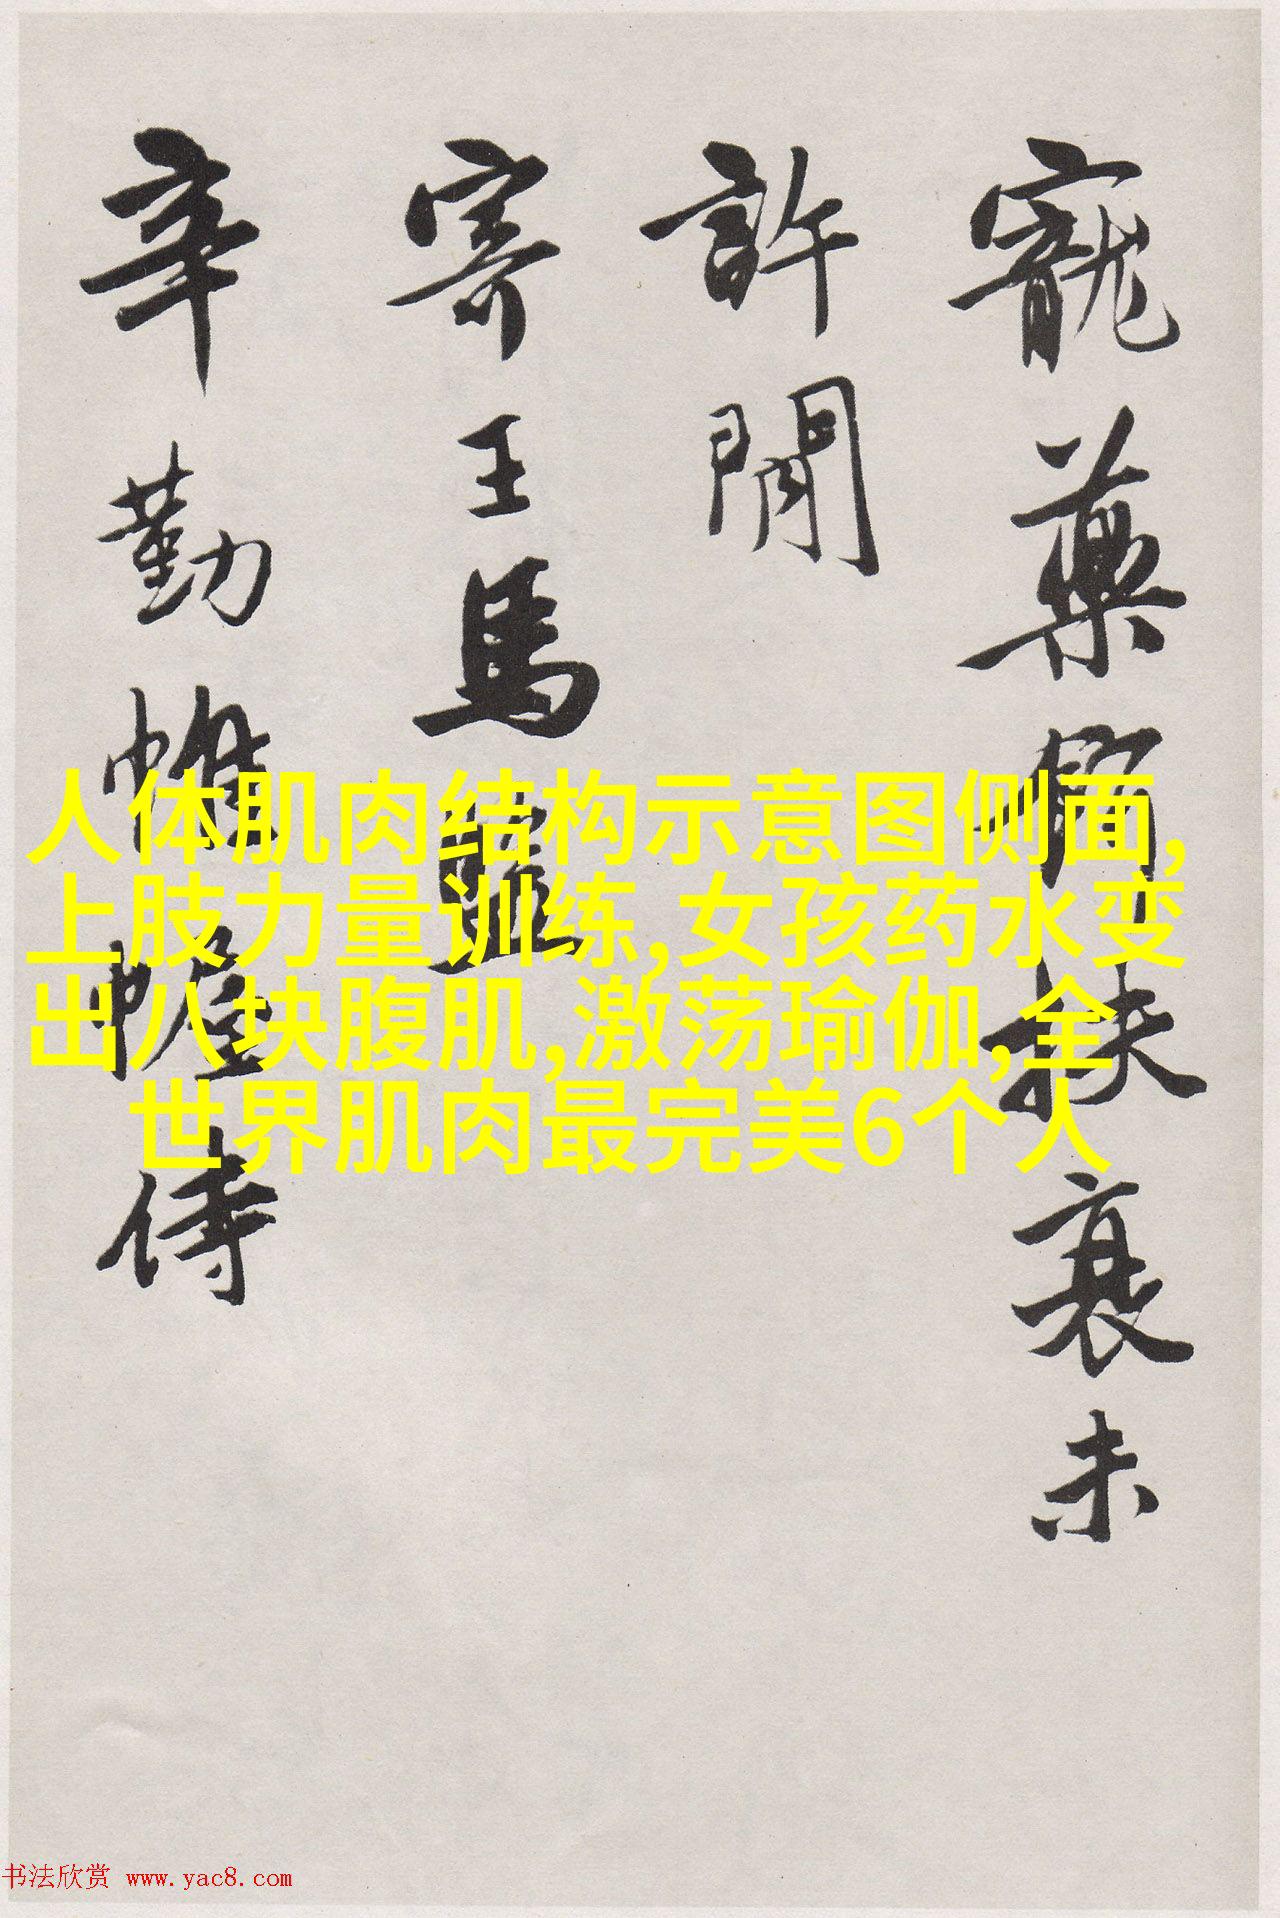 寵藥偏扶衰未
許閒
寄王馬驢
辛勤帷幄侍
人体肌肉结构示意图侧面,
上肢力量训练,女孩药水变
出八块腹肌,激荡瑜伽,全
世界肌肉最完美6个人
书法欣赏 www.yac8.com